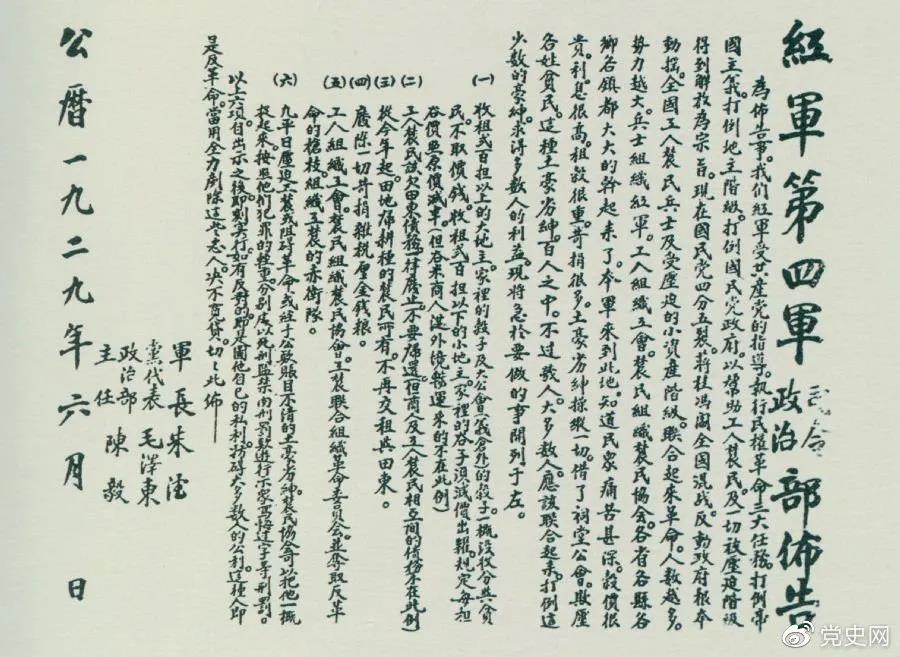 紅軍第四軍司令政治部佈告
為佈告事。我們紅軍受共產党的指導。執行民權革命三大任務。打倒帝
國主義。打倒地主階級。打倒國民党政府。以幫助工人農民。及一切被壓迫階級
得到解放為宗旨。現在國民党四分五裂。蔣桂馮閻全國混战。反動政府根本
動搖。全國工人農民兵士及受壓迫的小資產階級。聯合起來革命。人数越多。
势力越大。兵士組織紅軍。工人組織工會。農民組織農民協会。各省各縣各
鄉各鎮都大大的幹起來了。本軍來到此地。知道民眾痛苦甚深。穀價很
貴。利息很高。租穀很重。苛捐很多。土豪劣紳操縱一切。借了祠堂公會。欺壓
各姓貧民。這種土豪劣紳。百人之中。不过數人。大多數人。應該聯合起來。打倒這
少數的豪紳。求得多數人的利益。現將急於要做的事開列于左。
(一)收租弍百担以上的大地主。家裡的穀子及大公會(義倉外)的穀子一概沒收分與貧
民。不取價钱。收租弍百担以下的小地主。家裡的谷子須減價出糶。規定每担
谷價照原價減半。(但谷米商人從外境轉運來的不在此例)
(二)工人農民該欠田東債務。一律廢止。不要歸還。(但商人及工人農民相互間的債務不在此例)
(三)從今年起。田地歸耕種的農民所有。不再交租與田東。
(四)廢除一切苛捐雜稅厘金錢粮。
(五)工人組織工會。農民組織農民協會。工農聯合組織革命委員会。並奪取反革
命的槍枝組織工農的赤衛隊。
(六)凡平日壓迫工農或阻碍革命。或經手公款賬目不清的土豪劣紳。農民協會可以把他一概
捉起來。按照他們犯罪的輕重。分別處以死刑監禁肉刑罰款遊行示眾寫悔过字等刑罰。
以上六項自出示之後即刻實行。如有反對的。即是圖他自己的私利。妨碍大多數人的公利。這種人即
是反革命。當用全力剷除這些惡人。決不寬貸。切々此佈——
軍長朱德
黨代表毛澤東
政治部主任陳毅
公曆一九二九年六月 日
党史网